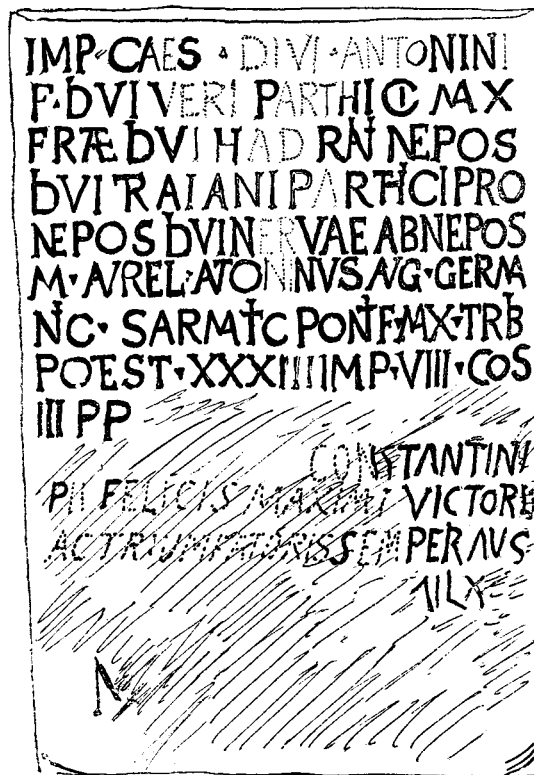 IMP CAES · DIVI · ANTONINI
F · DIVI VERI PARTHICI MAX
FRATRI DIVI HADRIANI NEPOS
DIVI TRAIANI PARTHICI PRO
NEPOS DIVI NERVAE ABNEPOS
M · AVREL · ANTONINVS AVG · GERMA
NIC · SARMATIC PONTIF · MAX · TRIB
POTEST · XXXIIII IMP · VIII · COS
III PP
CONSTANTINI
PII FELICIS MAXIMI VICTORI
AC TRIUMFATORIS SEMPER AUG